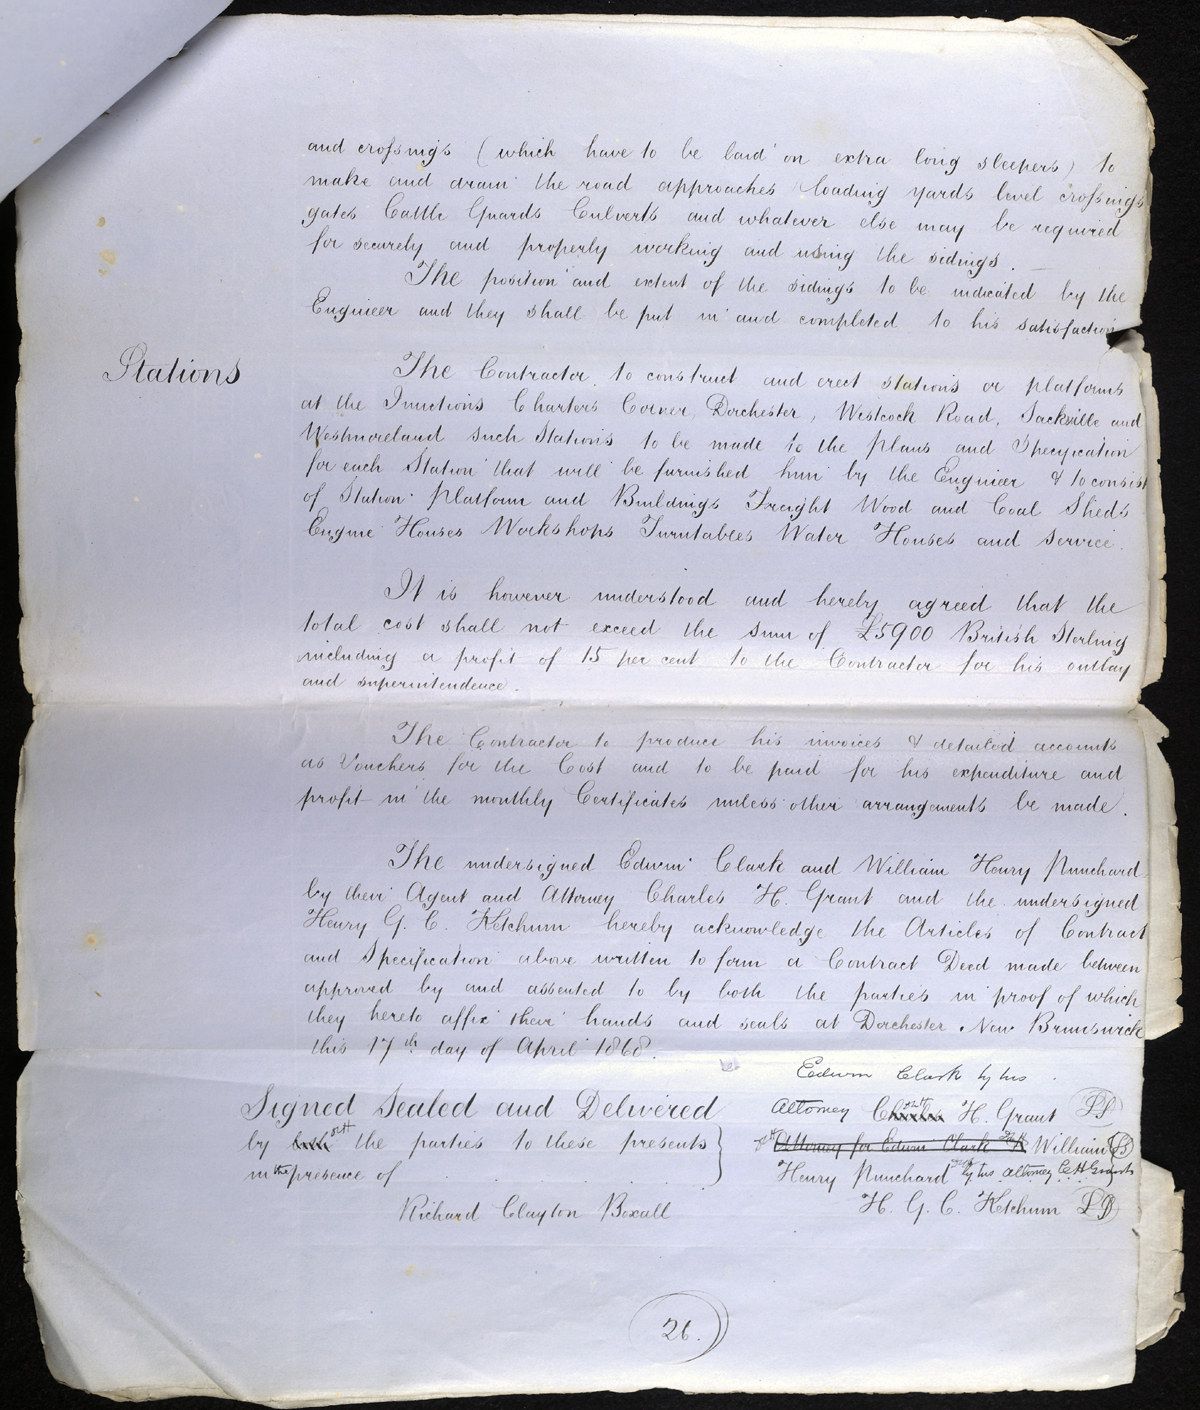 and crossings (which have to be laid on extra long sleepers) to
make and drain the road approaches loading yards level crossings
gates Cattle Guards Culverts and whatever else may be required
for securely and properly working and using the sidings.
The position and extent of the sidings to be indicated by the
Engineer and they shall be put in and completed to his satisfaction
Stations
The Contractor to construct and erect stations or platforms
at the Junctions Charters Corner, Dorchester, Westcock Road, Sackville and
Westmoreland such Stations to be made to the plans and Specification
for each Station that will be furnished him by the Engineer & to consist
of Station Platform and Buildings Freight Wood and Coal Sheds
Engine Houses Workshops Turntables Water Houses and Service.
It is however understood and hereby agreed that the
total cost shall not exceed the sum of £5900 British Sterling
including a profit of 15 per cent to the Contractor for his outlay
and superintendence.
The Contractor to produce his invoices & detailed accounts
as Vouchers for the Cost and to be paid for his expenditure and
profit in the monthly Certificates unless other arrangements be made.
The undersigned Edwin Clark and William Henry Punchard
by their Agent and Attorney Charles H. Grant and the undersigned
Henry G. C. Ketchum hereby acknowledge the Articles of Contract
and Specification above written to form a Contract Deed made between
approved by and assented to by both the parties in proof of which
they hereto affix their hands and seals at Dorchester New Brunswick
this 17th day of April 1868.
Edwin Clark by his
Signed Sealed and Delivered
Attorney C H. Grant LS
by the parties to these presents
Attorney for Edwin Clark William LS
in the presence of
Henry Punchard by his attorney C H Grant
Richard Clayton Boxall
H. G. C. Ketchum LS
26.